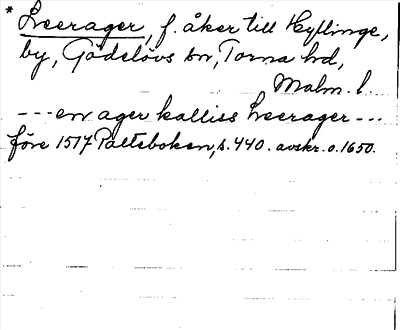 * Leerager, f. åker till Kyllinge,
by, Gödelövs sn, Torna hd,
Malm. l.
---en ager kalliss Leerager---
före 1517 Palteboken, s. 440. avskr. o. 1650.